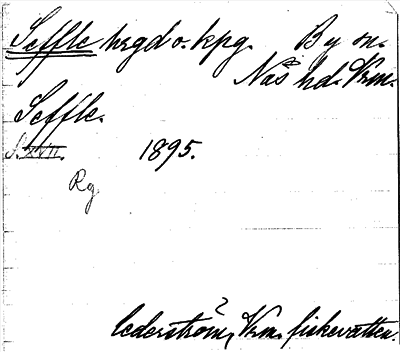 Seffle hrgd o. kpg. By sn.
Näs hd. Vrm.
Seffle.
S. XVII. 1895.
Rg
Cederström, Vrm. fiskevatten.